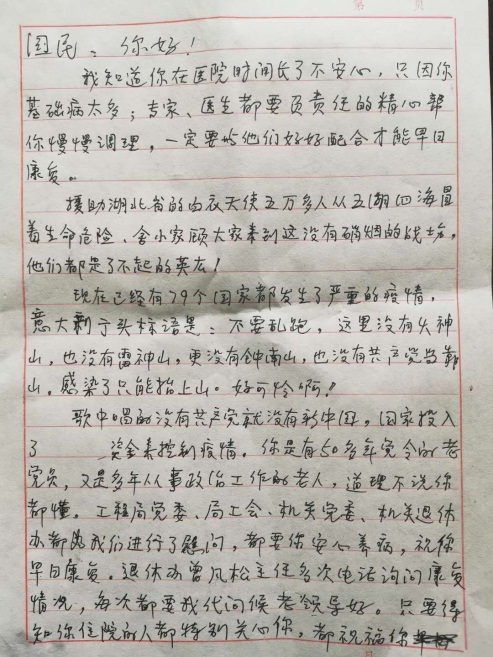 第 页
国民：你好！
我知道你在医院时间长了不安心，只因你
基础病太多；专家、医生都要负责任的精心帮
你慢慢调理，一定要与他们好好配合才能早日
康复。
援助湖北省的白衣天使五万多人从五湖四海冒
着生命危险、舍小家顾大家来到这没有硝烟的战场，
他们都是了不起的英雄！
现在已经有79个国家都发生了严重的疫情，
意大利于头标语是：不要乱跑，这里没有火神
山，也没有雷神山，更没有钟南山，也没有共产党当靠
山。感染了只能抬上山。好可怜啊！！
歌中唱的没有共产党就没有新中国。国家投入
了 资金来控制疫情。你是有50多年党令的老
党员，又是多年从事政治工作的老人，道理不说你
都懂。工程局党委、局工会、机关党委、机关退休
办都对我们进行了慰问，都要你安心养病，祝你
早日康复。退休办曾凤松主任多次电话询问康复
情况，每次都要我代问候老领导好。只要得
知你住院的人都特别关心你，都祝福你